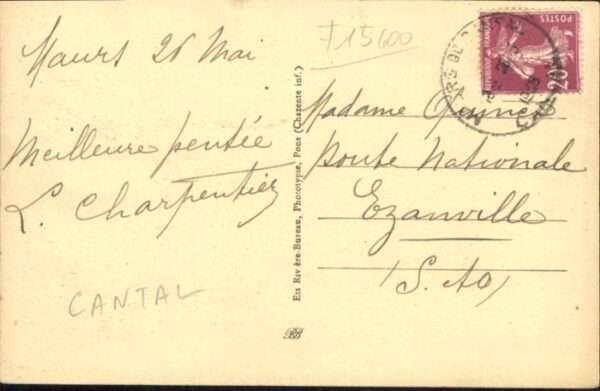 Maurs 26 Mai
Meilleure pensée
L. Charpentier
CANTAL
F15600
Ets Rivière-Bureau, Phototypie, Pons (Charente inf.)
POSTES
20
Madame
Route Nationale
Ezanville
(S. &O)